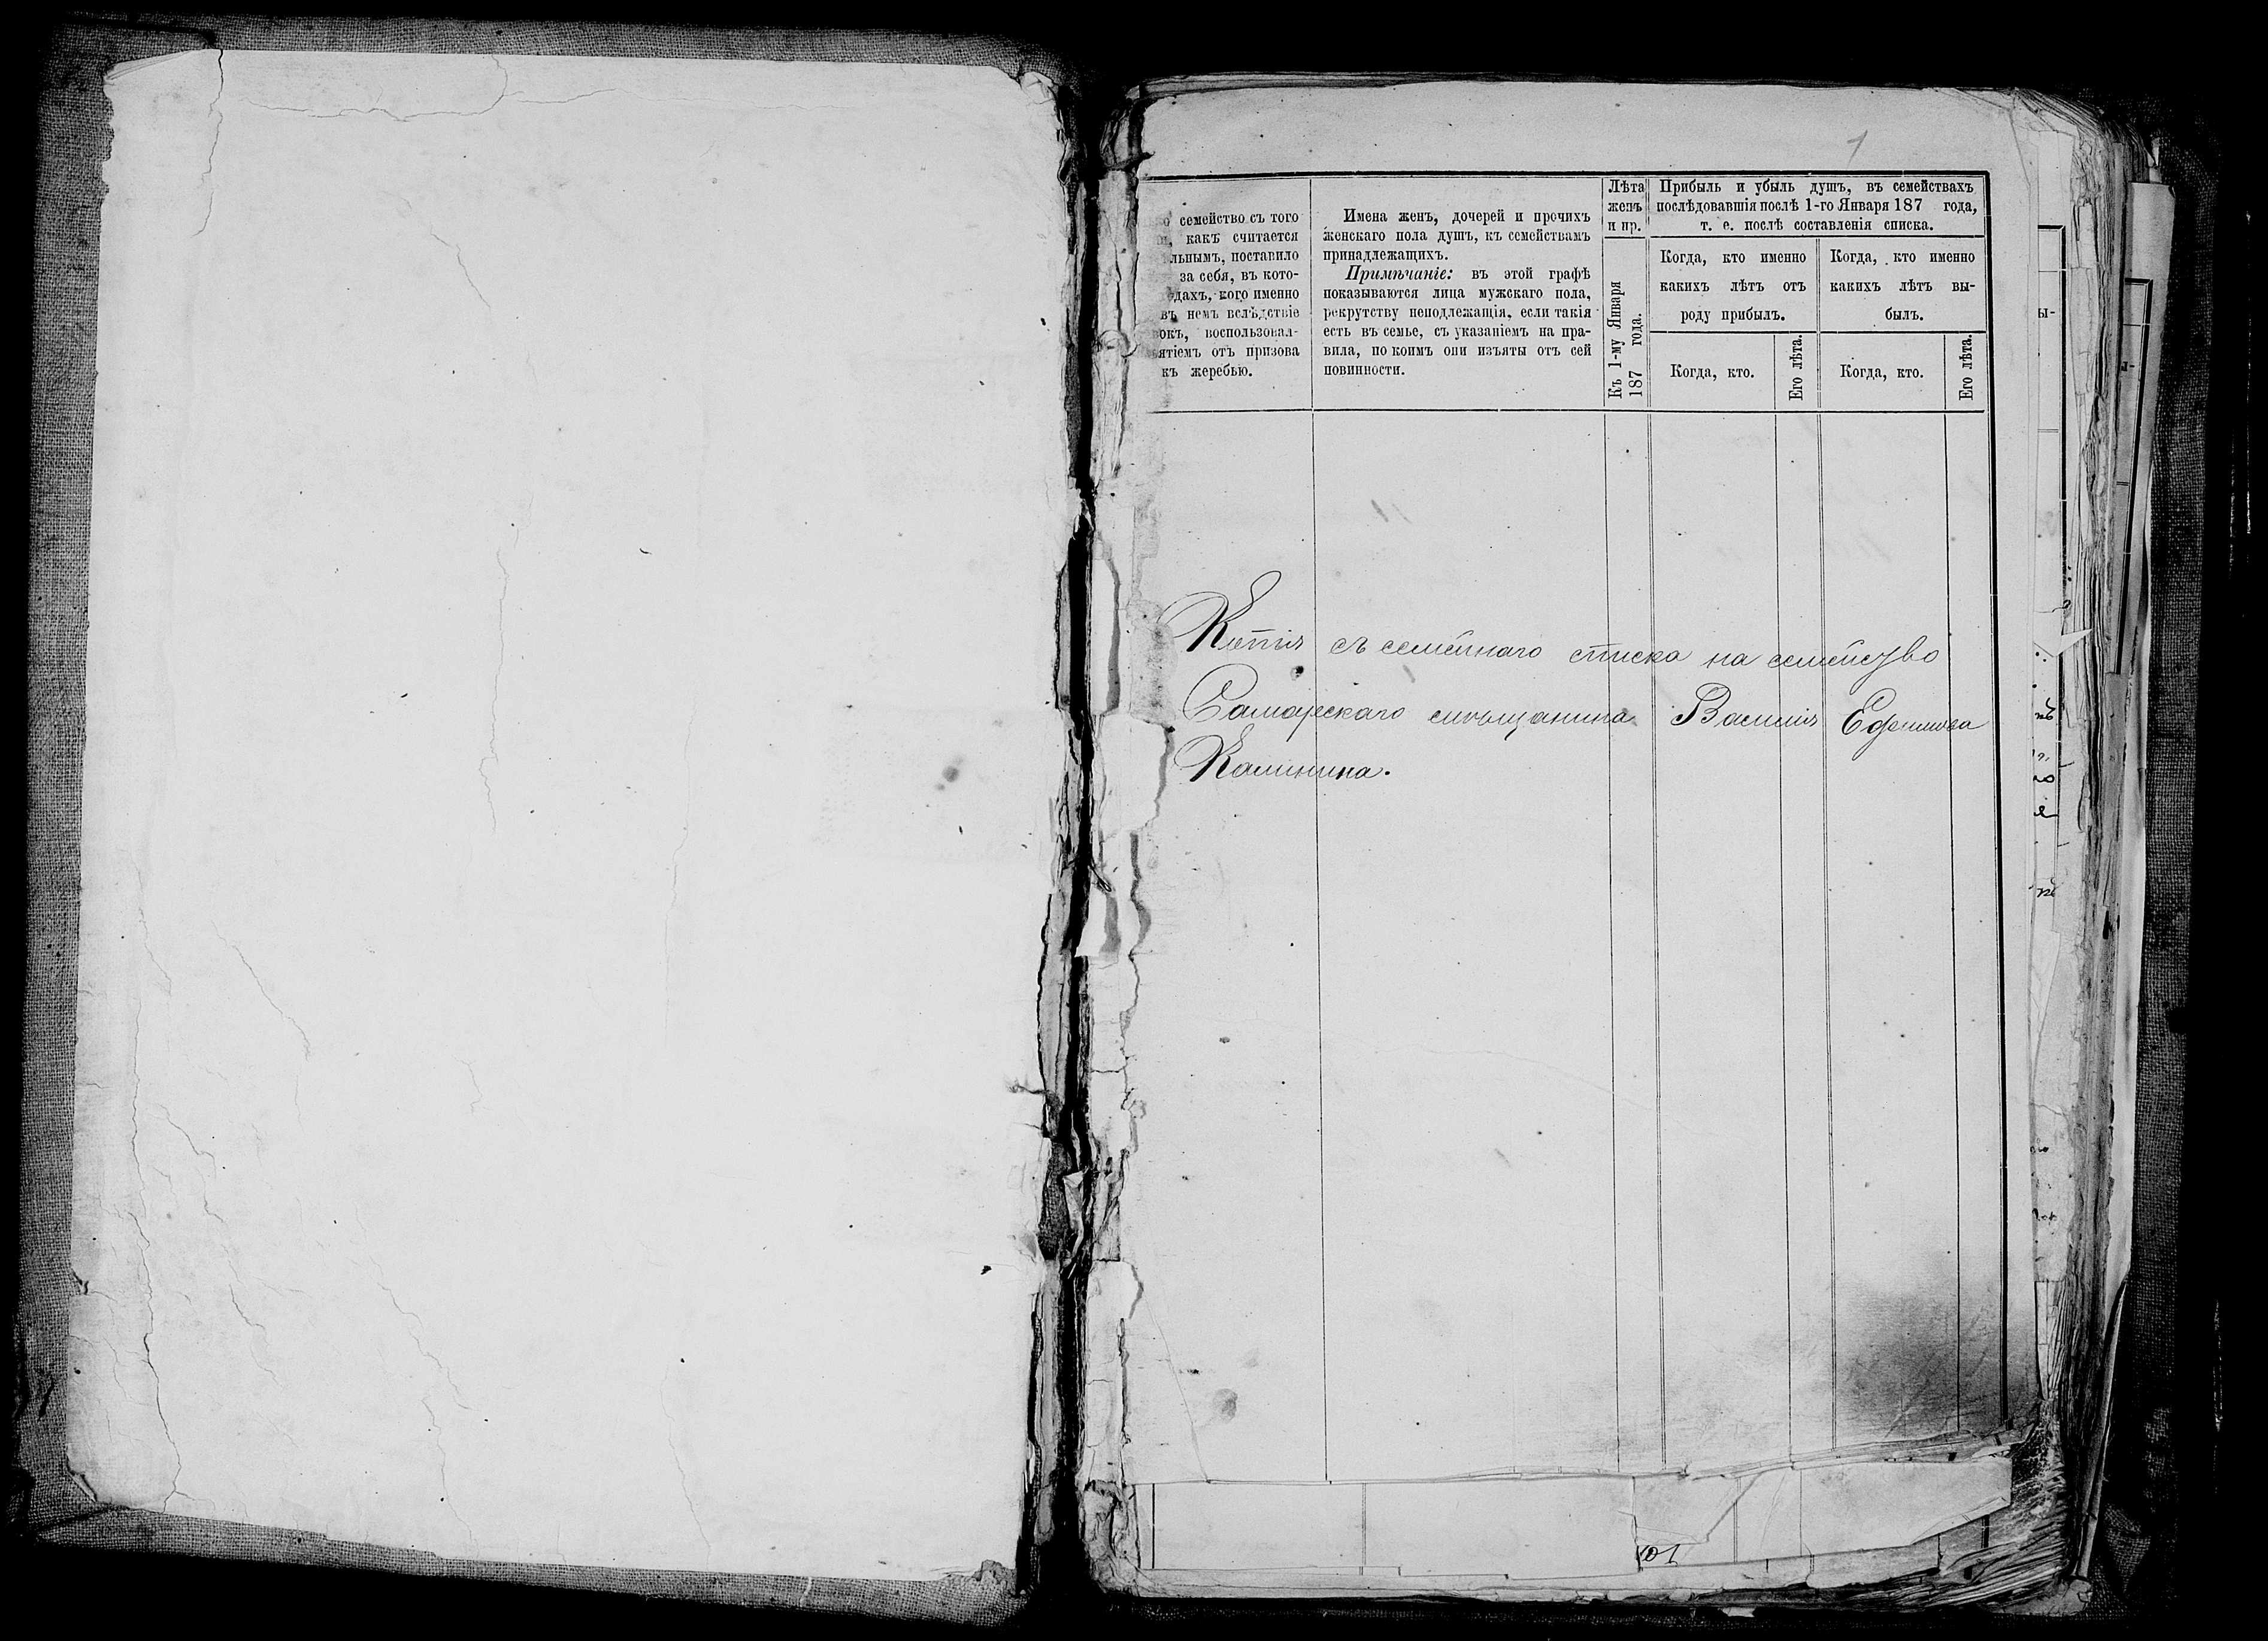 1
семейство съ того
какъ считается
льнымъ, поставило
за себя, въ кото-
дахъ, кого именно
въ немъ вслѣдствіе
окъ, воспользовал-
ятіемъ отъ призова
къ жеребью.
Имена женъ, дочерей и прочихъ
женскаго пола душъ, къ семействамъ
принадлежащихъ.
Примѣчаніе: въ этой графѣ
показываются лица мужскаго пола,
рекрутству неподлежащія, если такія
есть въ семье, съ указаніемъ на пра-
вила, по коимъ они изъяты отъ сей
повинности.
Лѣта
женъ
и пр.
Къ 1-му Января
187 года.
Прибыль и убыль душъ, въ семействахъ
послѣдовавшія послѣ 1-го Января 187 года,
т. е. послѣ составленія списка.
Когда, кто именно
какихъ лѣтъ отъ
роду прибылъ.
Когда, кто.
Его лѣта.
Когда, кто именно
какихъ лѣтъ вы-
былъ.
Когда, кто.
Его лѣта.
Копія съ семейнаго списка на семейство
Самарскаго мѣщанина Василія Ефимова
Калинина.